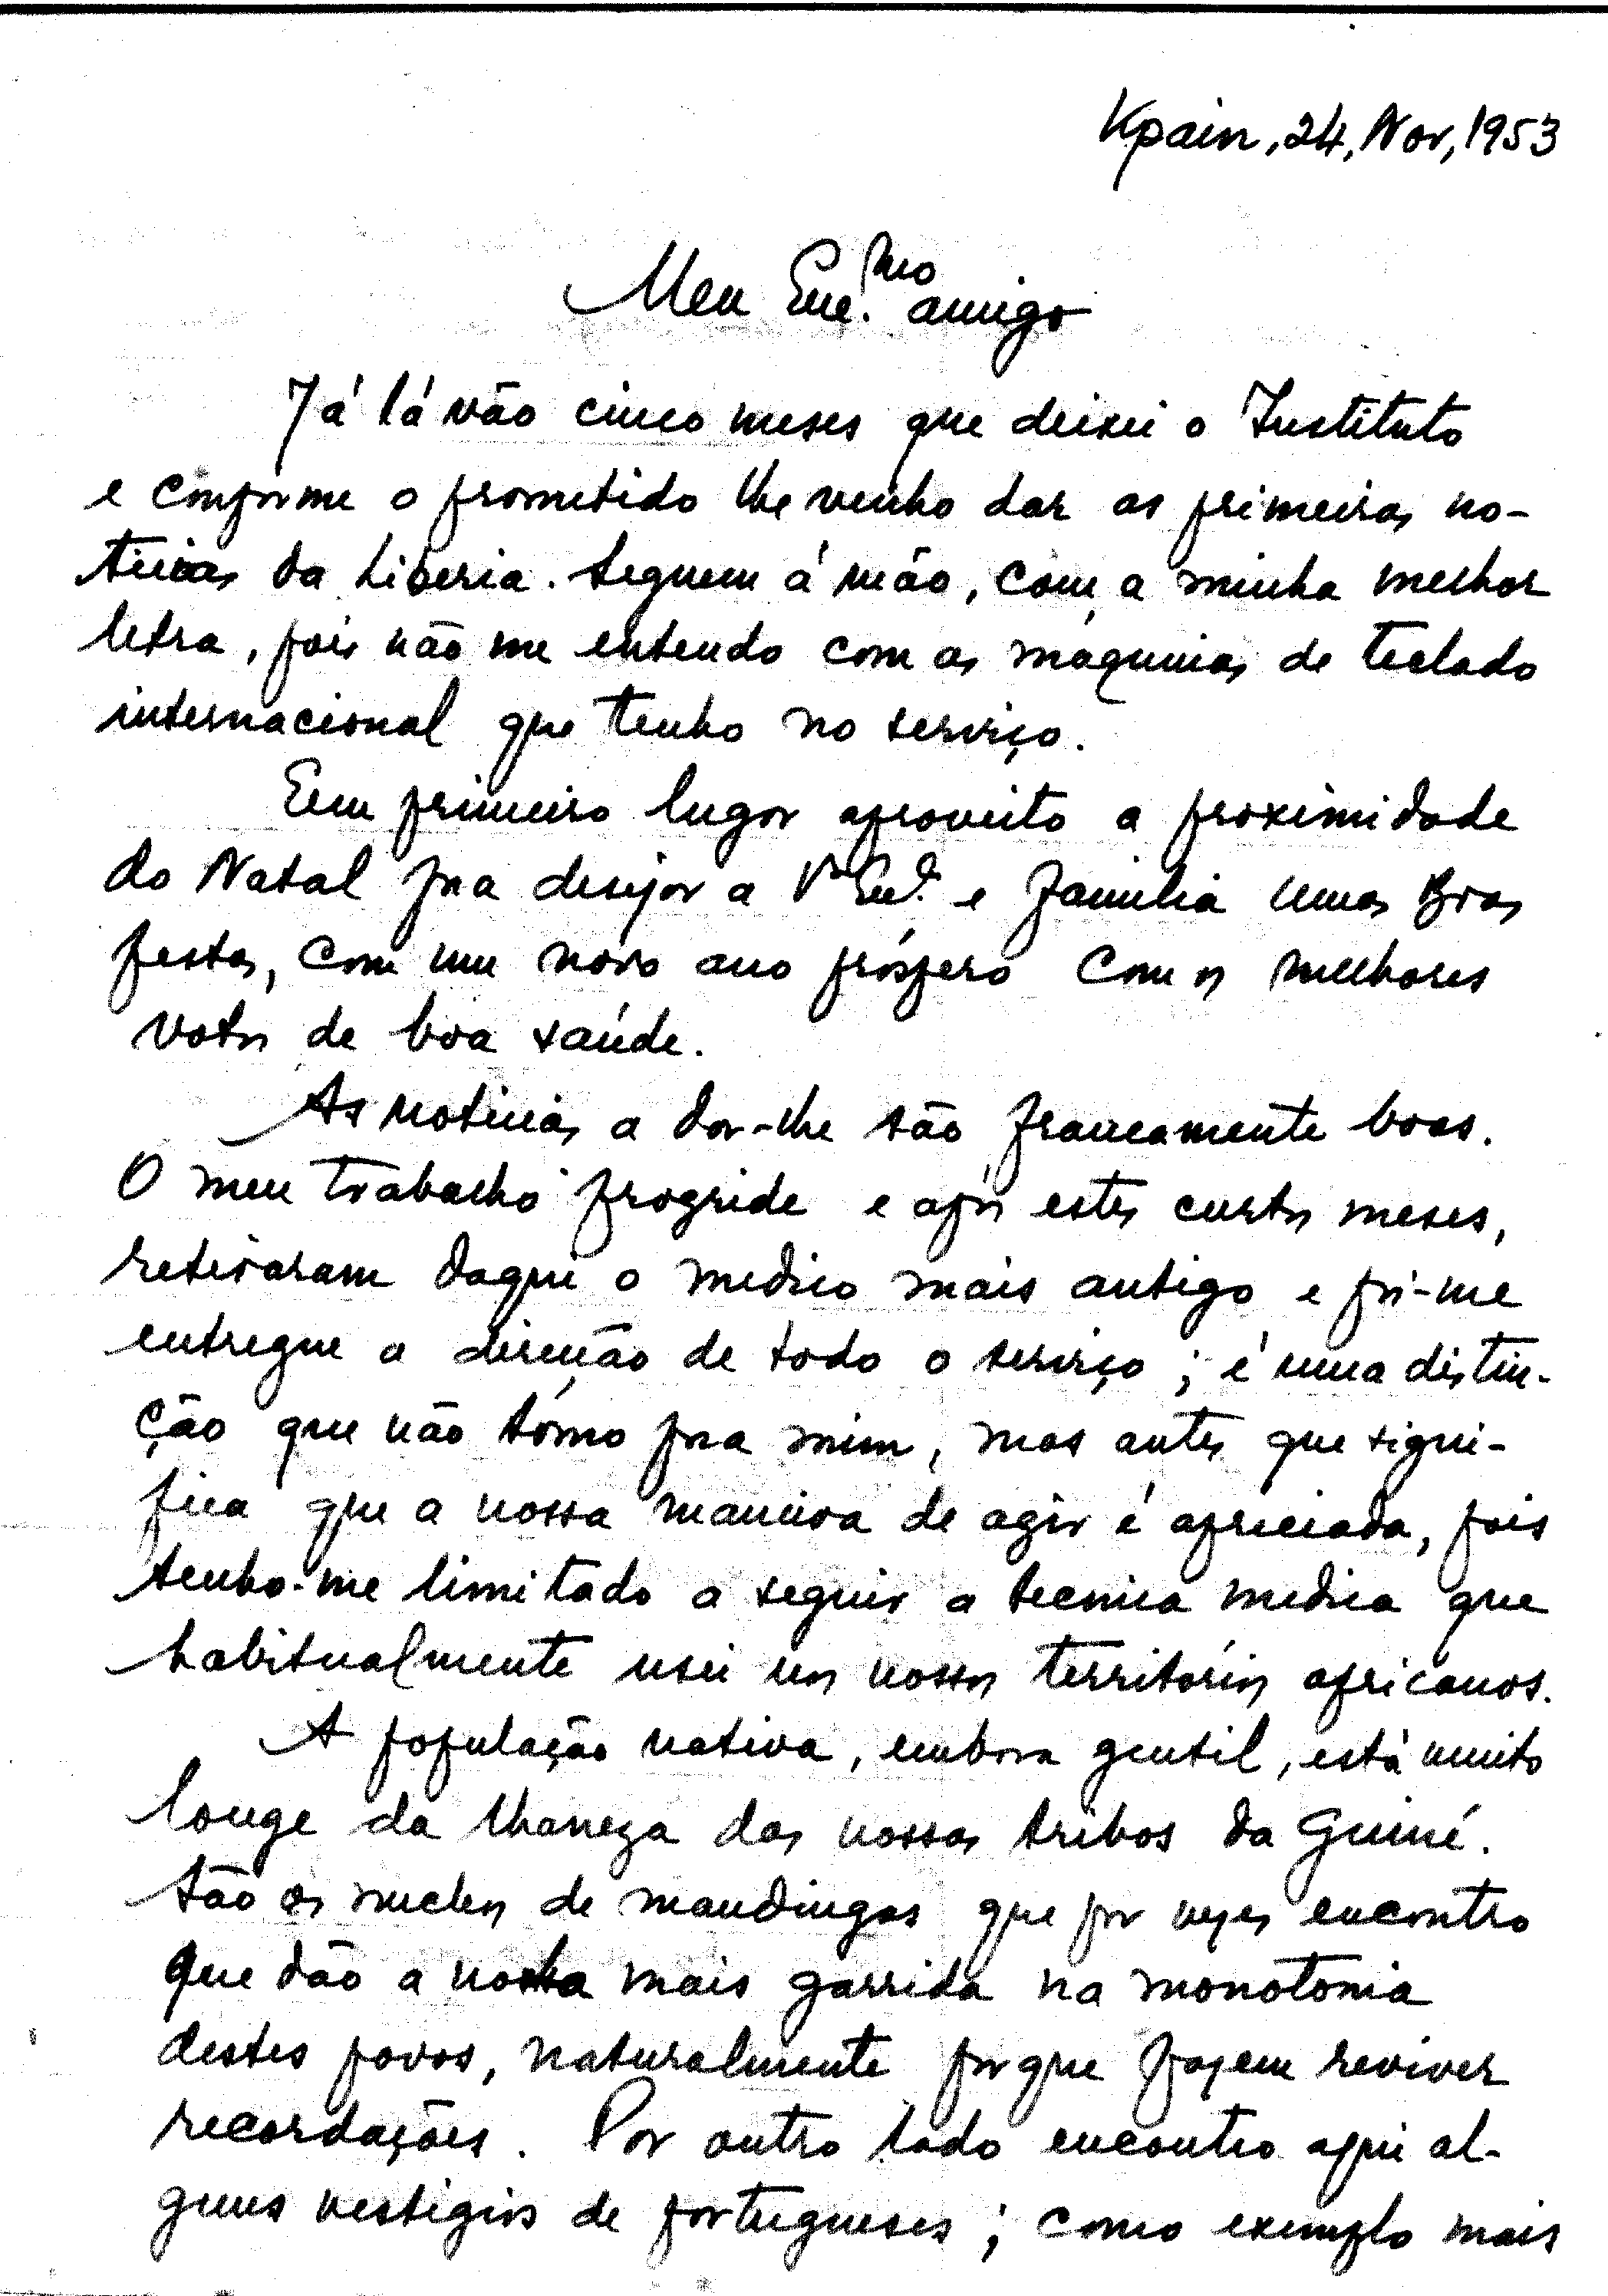 Kpain, 24, Nov, 1953
Meu Exc.mo amigo
Já lá vão cinco meses que deixei o Instituto
e conforme o prometido lhe venho dar as primeiras no-
ticias da Liberia. Seguem á mão, com a minha melhor
letra, pois não me entendo com as máquinas de teclado
internacional que tenho no serviço.
Em primeiro lugar aproveito a proximidade
do Natal pra desejar a V. Exc.ª e familia umas Boas
festas, com um novo ano próspero com os melhores
votos de boa saúde.
As noticias a dar-lhe são francamente boas.
O meu trabalho progride e após estes curtos meses,
retiraram daqui o medico mais antigo e foi-me
entregue a direcção de todo o serviço; é uma distin-
ção que não tómo pra mim, mas antes que signi-
fica que a nossa maneira de agir é apreciada, pois
tenho-me limitado a seguir a tecnica medica que
habitualmente usei nos nossos territórios africanos.
A população nativa, embora gentil, está muito
longe da lhaneza das nossas tribos da Guiné.
São os nucleos de mandingas que por vezes encontro
que dão a nota mais garrida na monotonia
destes povos, naturalmente porque fazem reviver
recordações. Por outro lado encontro aqui al-
guns vestigios de portugueses; como exemplo mais